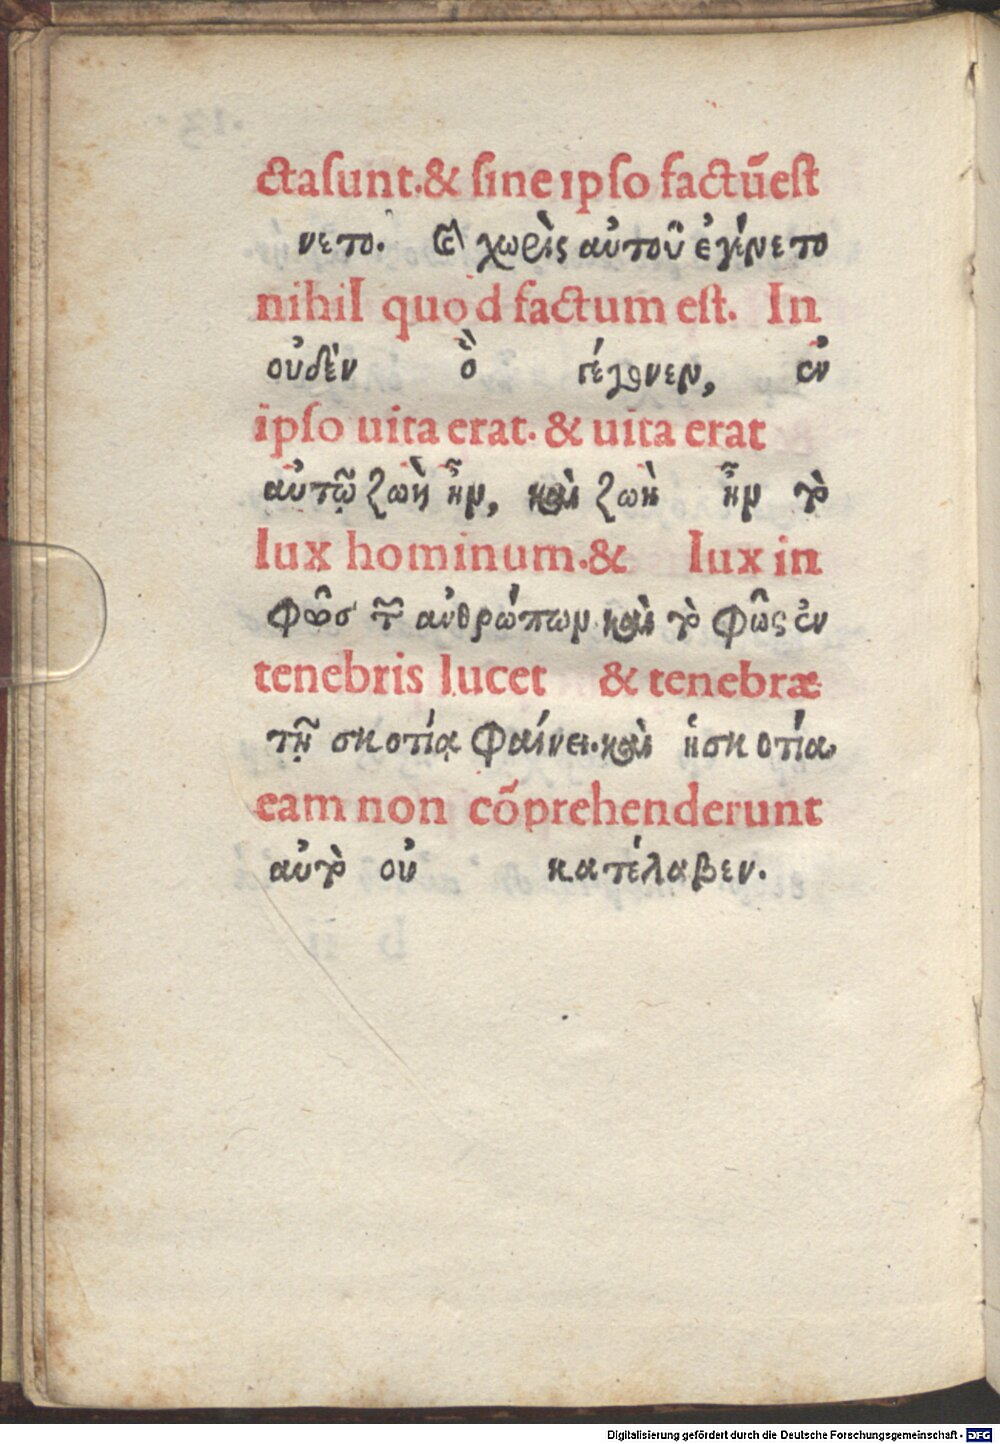 ctasunt.& sine ipso factūest
νετο. Cὶ χωρὶς αὐτοῦ ἐγένετο
nihil quod factum est. In
οὐδὲν ὃ γέγονεν, ἐν
ipso uita erat. & uita erat
αὐτῷ ζωὴ ἦν, καὶ ζωὴ ἦν τὸ
lux hominum.& lux in
φῶσ τῶν ἀνθρώπων καὶ τὸ φῶς ἐν
tenebris lucet & tenebræ
τῇ σκοτίᾳ φαίνει.καὶ ἡσκοτία
eam non cōprehenderunt
αὐτὸ οὐ κατέλαβεν.
Digitalisierung gefördert durch die Deutsche Forschungsgemeinschaft - DFG